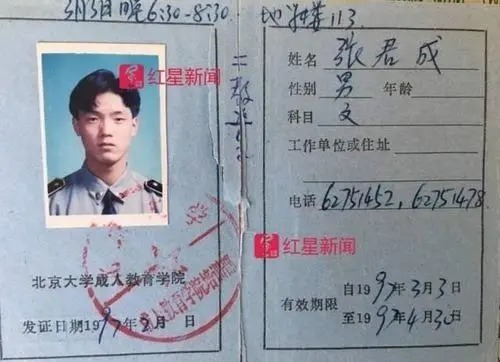 3月3日晚6:30-8:30.
地
113.
红星新闻
北京大学成人教育学院
发证日期1997年2月 日
成人教育学院培训部
姓名 张君成
性别 男 年龄
科目 文
工作单位或住址
电话 62751452, 62751478
红星新闻
有效期限
自1997年3月3日
至1997年4月30日